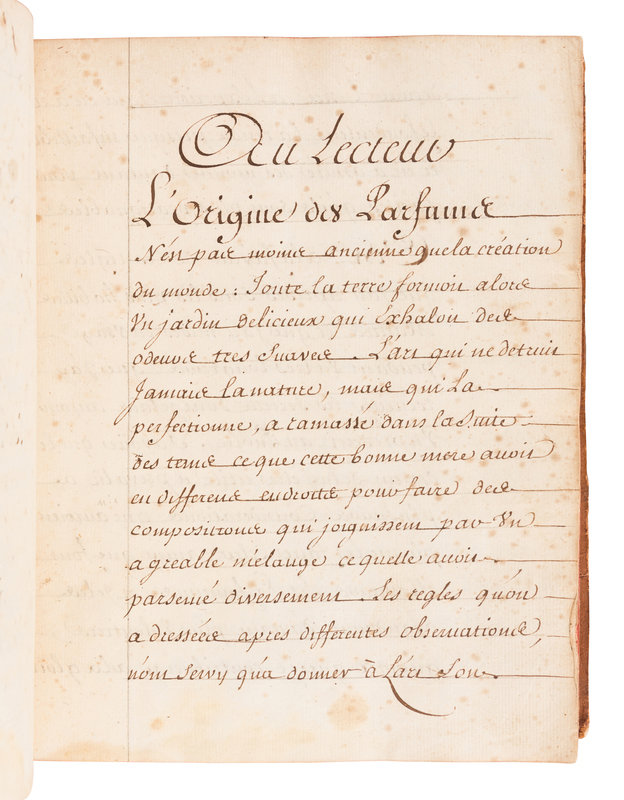 Au Lecteur
L'Origine des Parfums
N'est pas moins ancienne que la création
du monde : Toute la terre formoit alors
Un jardin delicieux qui Exhaloit des
odeurs tres suaves. L'art qui ne detruit
Jamais la nature, mais qui La
perfectionne, a ramassé dans la Suite
des tems ce que cette bonne mere avoit
en differens endroits pour faire des
compositions qui joignissent par Un
agreable mélange ce quelle avoit
parsemé diversement Les regles qu'on
a dressées apres differentes observations,
n'ont servy qu'a donner à L'art Son